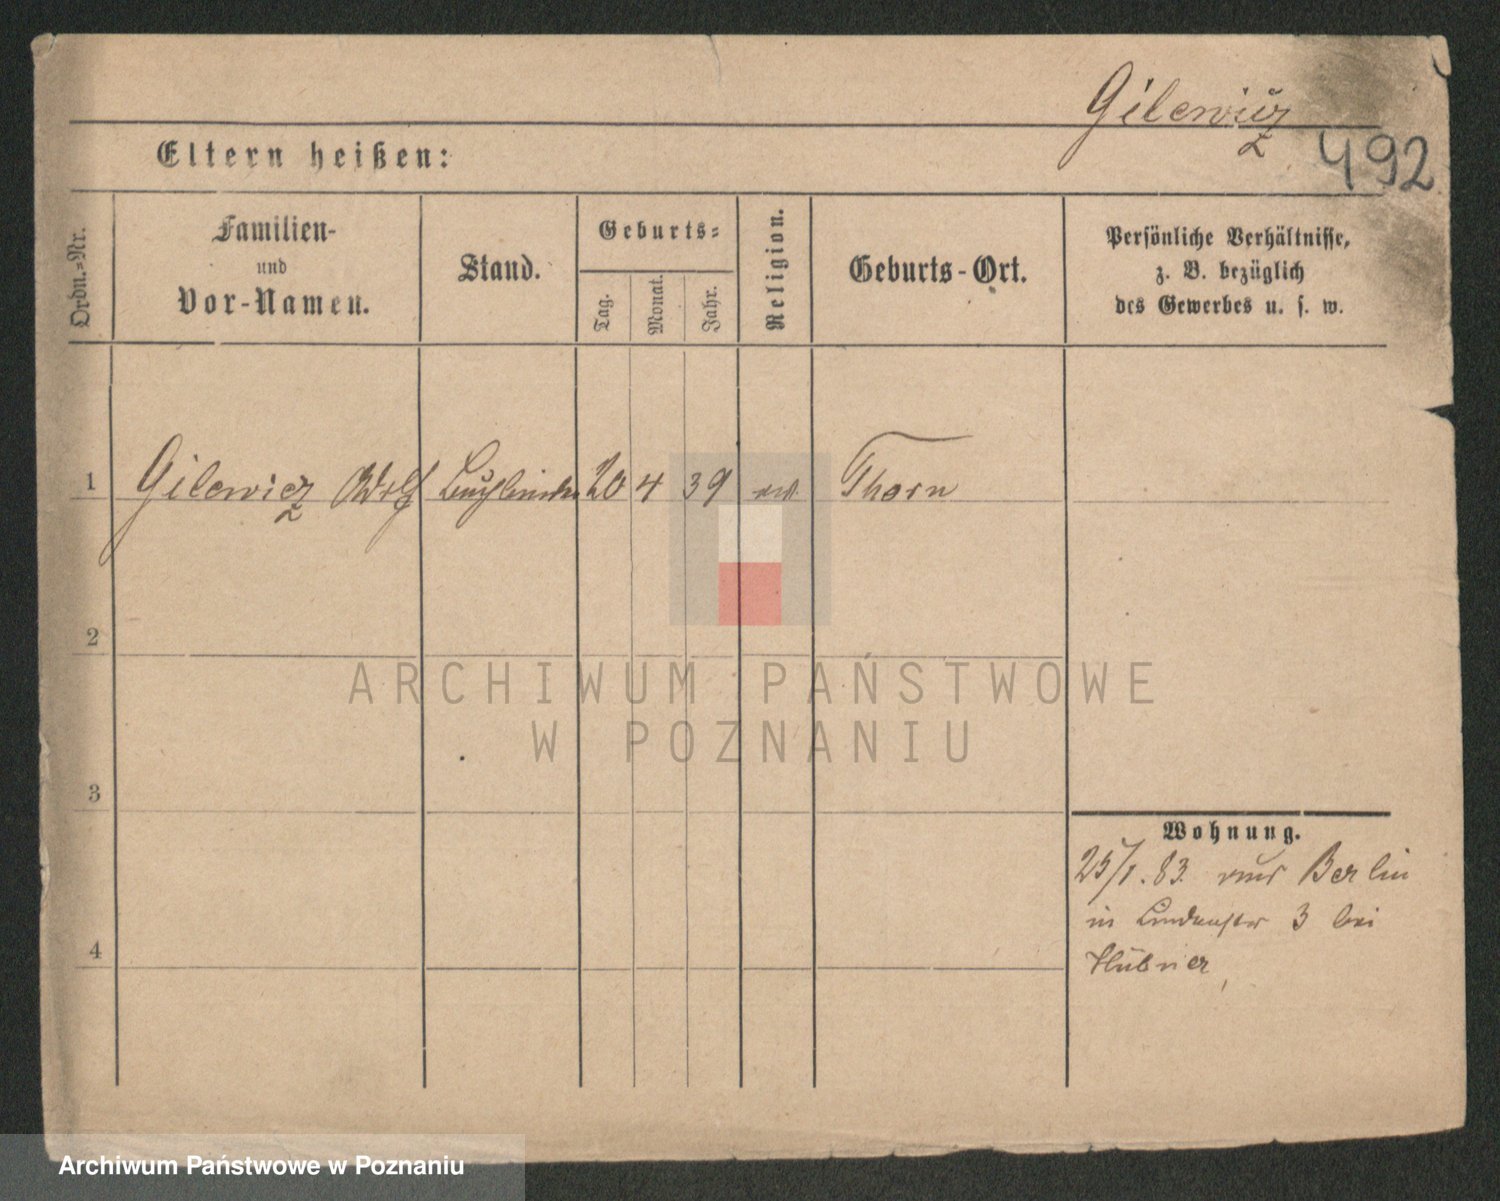 Gilewicz
492
Eltern heißen:
Ordn.-Nr.
Familien-
und
Vor-Namen.
Stand.
Geburts-
Tag.
Monat.
Jahr.
Religion.
Geburts-Ort.
Persönliche Verhältnisse,
z. B. bezüglich
des Gewerbes u. s. w.
1 Gilewicz Wolf 20 4 39 Thorn
2
ARCHIWUM PAŃSTWOWE
W POZNANIU
3
Wohnung.
25/1.83. aus Berlin
in 3 bei
4
Hübner
Archiwum Państwowe w Poznaniu